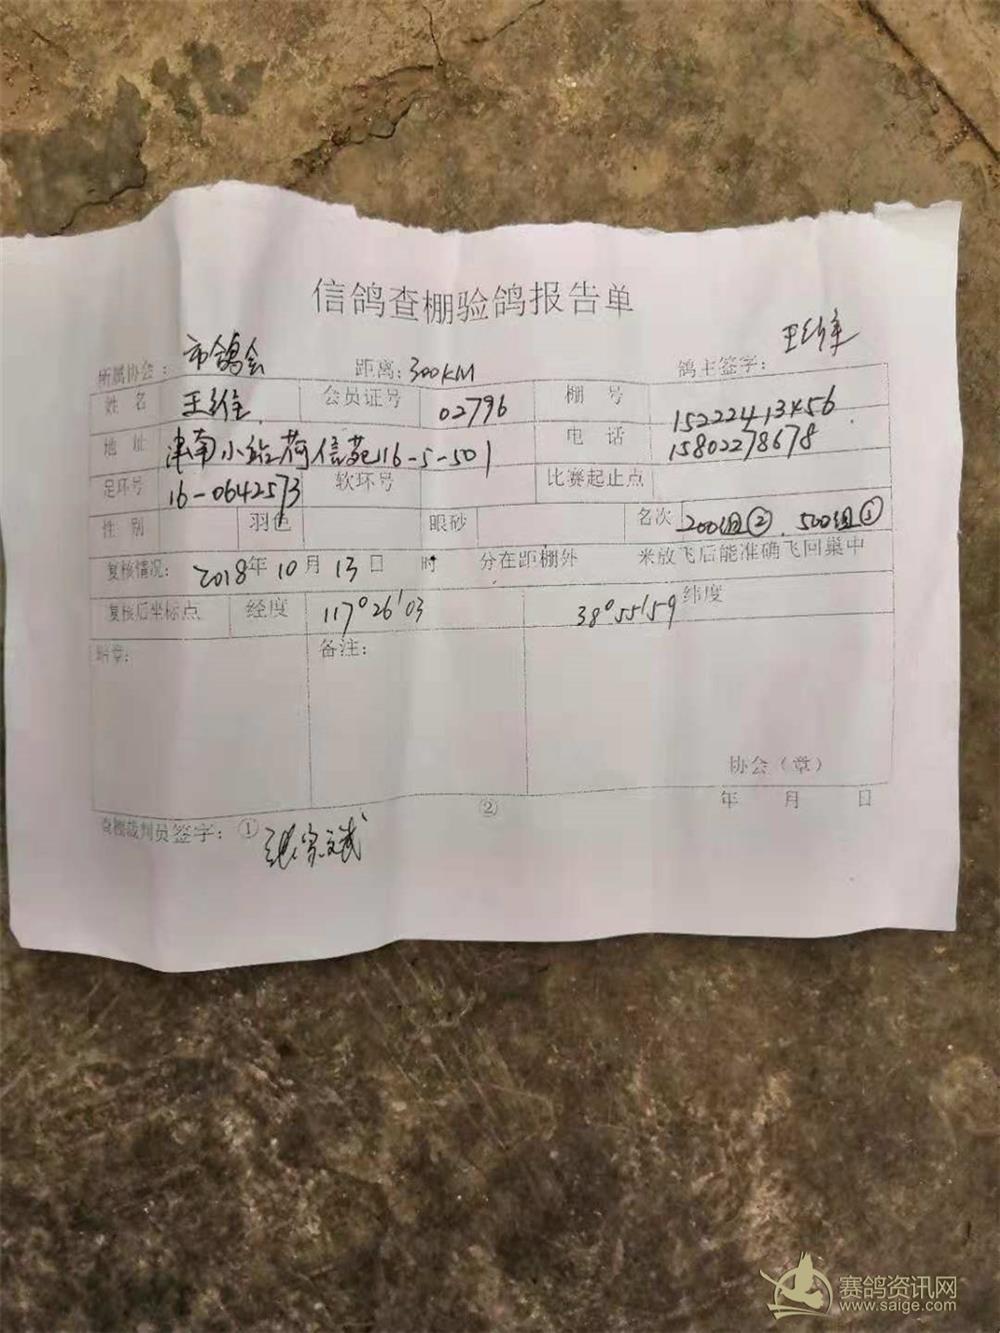 信鸽查棚验鸽报告单
所属协会: 市鸽会 距离: 300KM 鸽主签字: 王维
姓 名 王维 会员证号 02796 棚 号
地 址 津南小站荷信苑116-5-501 电 话 15222413456 15802278678
足环号 16-0642573 软环号 比赛起止点
性 别 羽色 眼砂 名次 200组② 500组①
复核情况: 2018年10月13日 时 分在距棚外 米放飞后能准确飞回巢中
复核后坐标点 经度 117°26′03 38°55′59 纬度
备注:
协会(章)
年 月 日
查棚裁判员签字: ① 张家斌 ②
赛鸽资讯网
www.saige.com